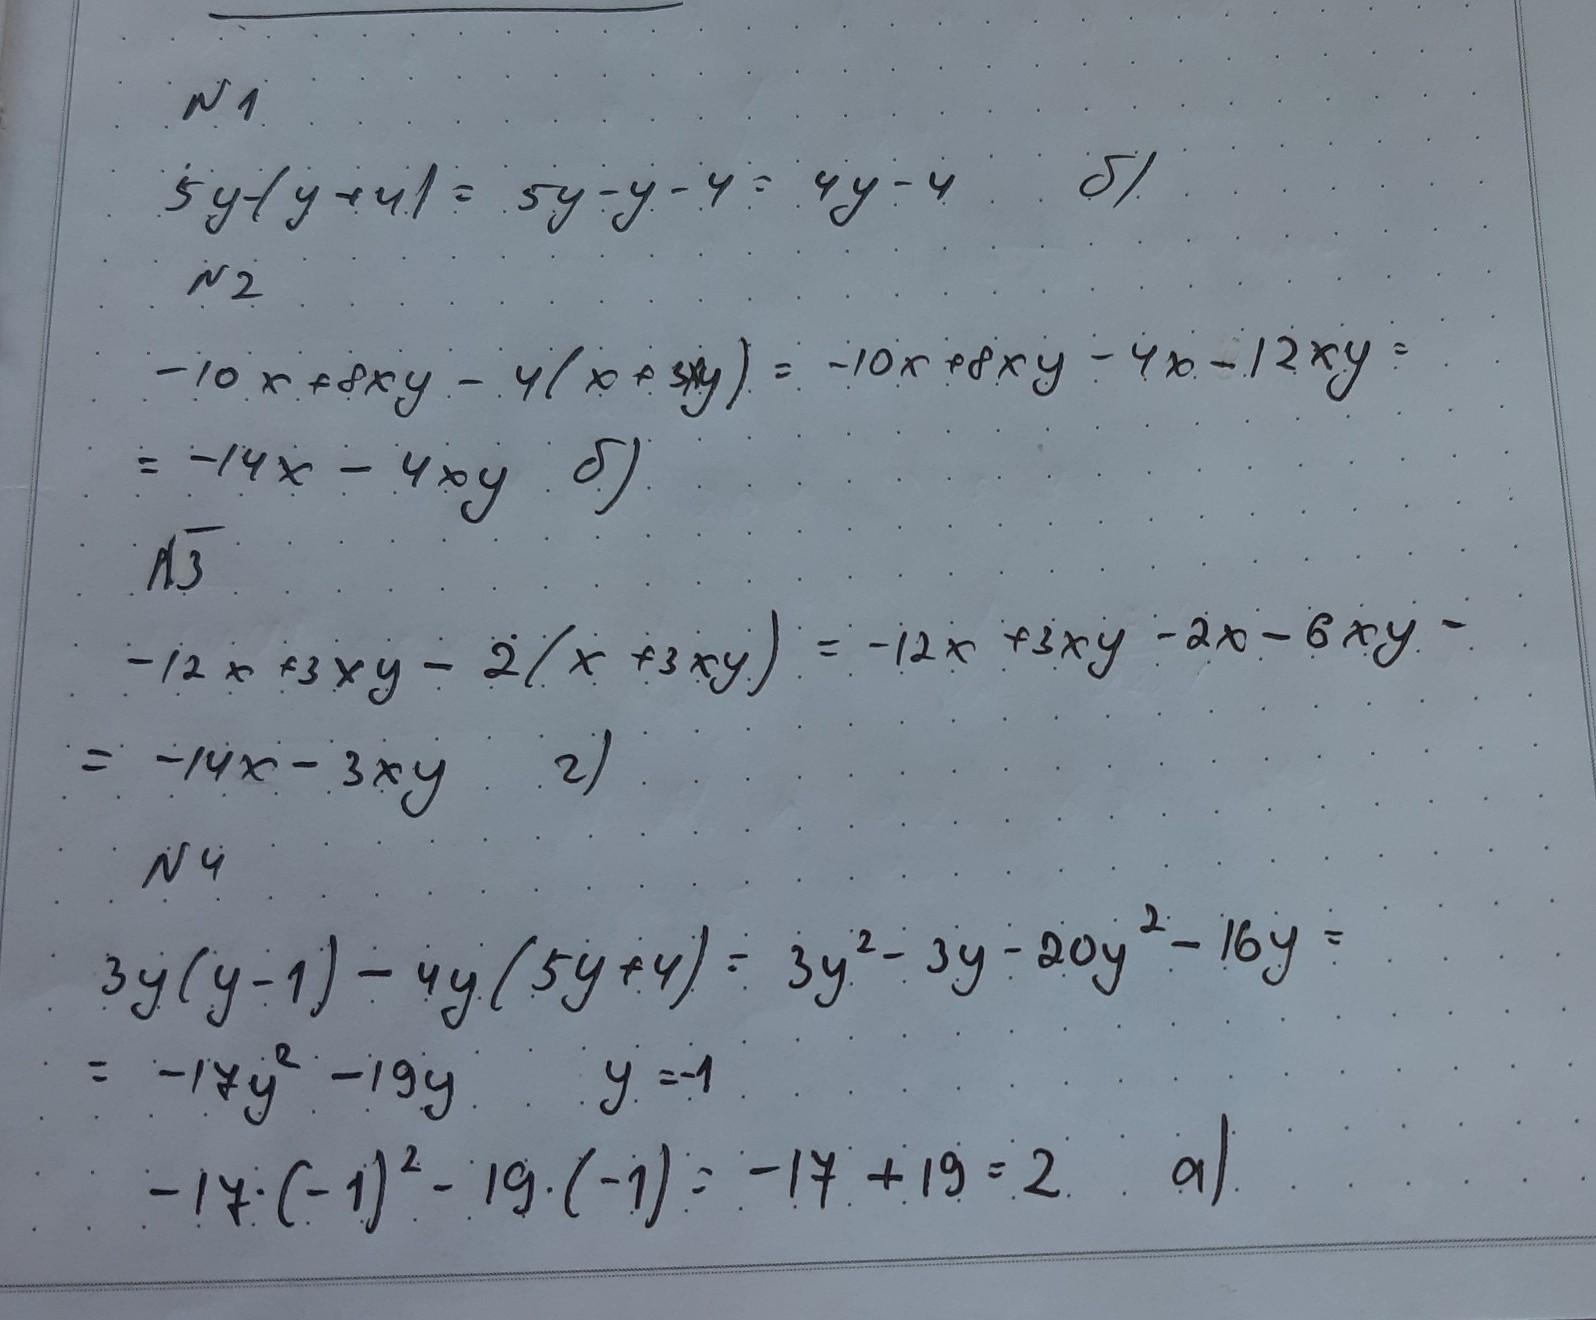 N1
5y-(y+4)= 5y-y-4= 4y-4 б)
N2
-10x+8xy - 4(x+3xy) = -10x+8xy - 4x - 12xy =
= -14x - 4xy б)
N3
-12x+3xy - 2(x+3xy) = -12x+3xy-2x-6xy -
= -14x-3xy г)
N4
3y(y-1) - 4y(5y+4) = 3y²-3y-20y²-16y =
= -17y²-19y y=-1
-17·(-1)²-19·(-1) = -17+19=2 a)